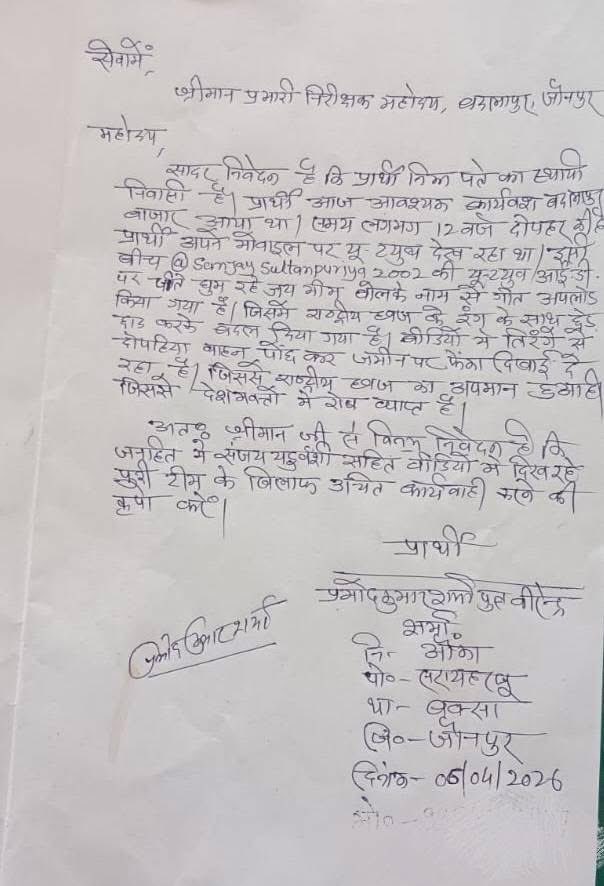 सेवामें,
श्रीमान प्रभारी निरीक्षक महोदय, बदलापुर, जौनपुर
महोदय,
सादर निवेदन है कि प्रार्थी निम्न पते का स्थायी
निवासी है। प्रार्थी आज आवश्यक कार्यवश बदलापुर
बाजार आया था। समय लगभग 12 बजे दोपहर की है
प्रार्थी अपने मोबाइल पर यू-टयुब देख रहा था। इसी
बीच @ Sanjay Sultanpuriya 2002 की यू-टयुब आई.डी.
पर पीते घुम रहे जय भीम बोलके नाम से गीत अपलोड
किया गया है। जिसमें राष्ट्रीय ध्वज के रंग के साथ छेड़
छाड़ करके बदल दिया गया है। वीडियो में तिरंगे से
दोपहिया वाहन पोंछ कर जमीन पर फेंका दिखाई दे
रहा है। जिससे राष्ट्रीय ध्वज का अपमान हुआ है।
जिससे देशभक्तों में रोष व्याप्त है।
अतः श्रीमान जी से विनम्र निवेदन है कि
जनहित में संजय यदुवंशी सहित वीडियो में दिख रहे
पुरी टीम के खिलाफ उचित कार्यवाही करने की
कृपा करें।
प्रार्थी
प्रमोद कुमार शर्मा पुत्र वीरेन्द्र
शर्मा
प्रमोद कुमार शर्मा
नि०- ओंका
पो०- सरायहरखू
था- बक्सा
जि०- जौनपुर
दिनांक- 05/04/2026
मो०-